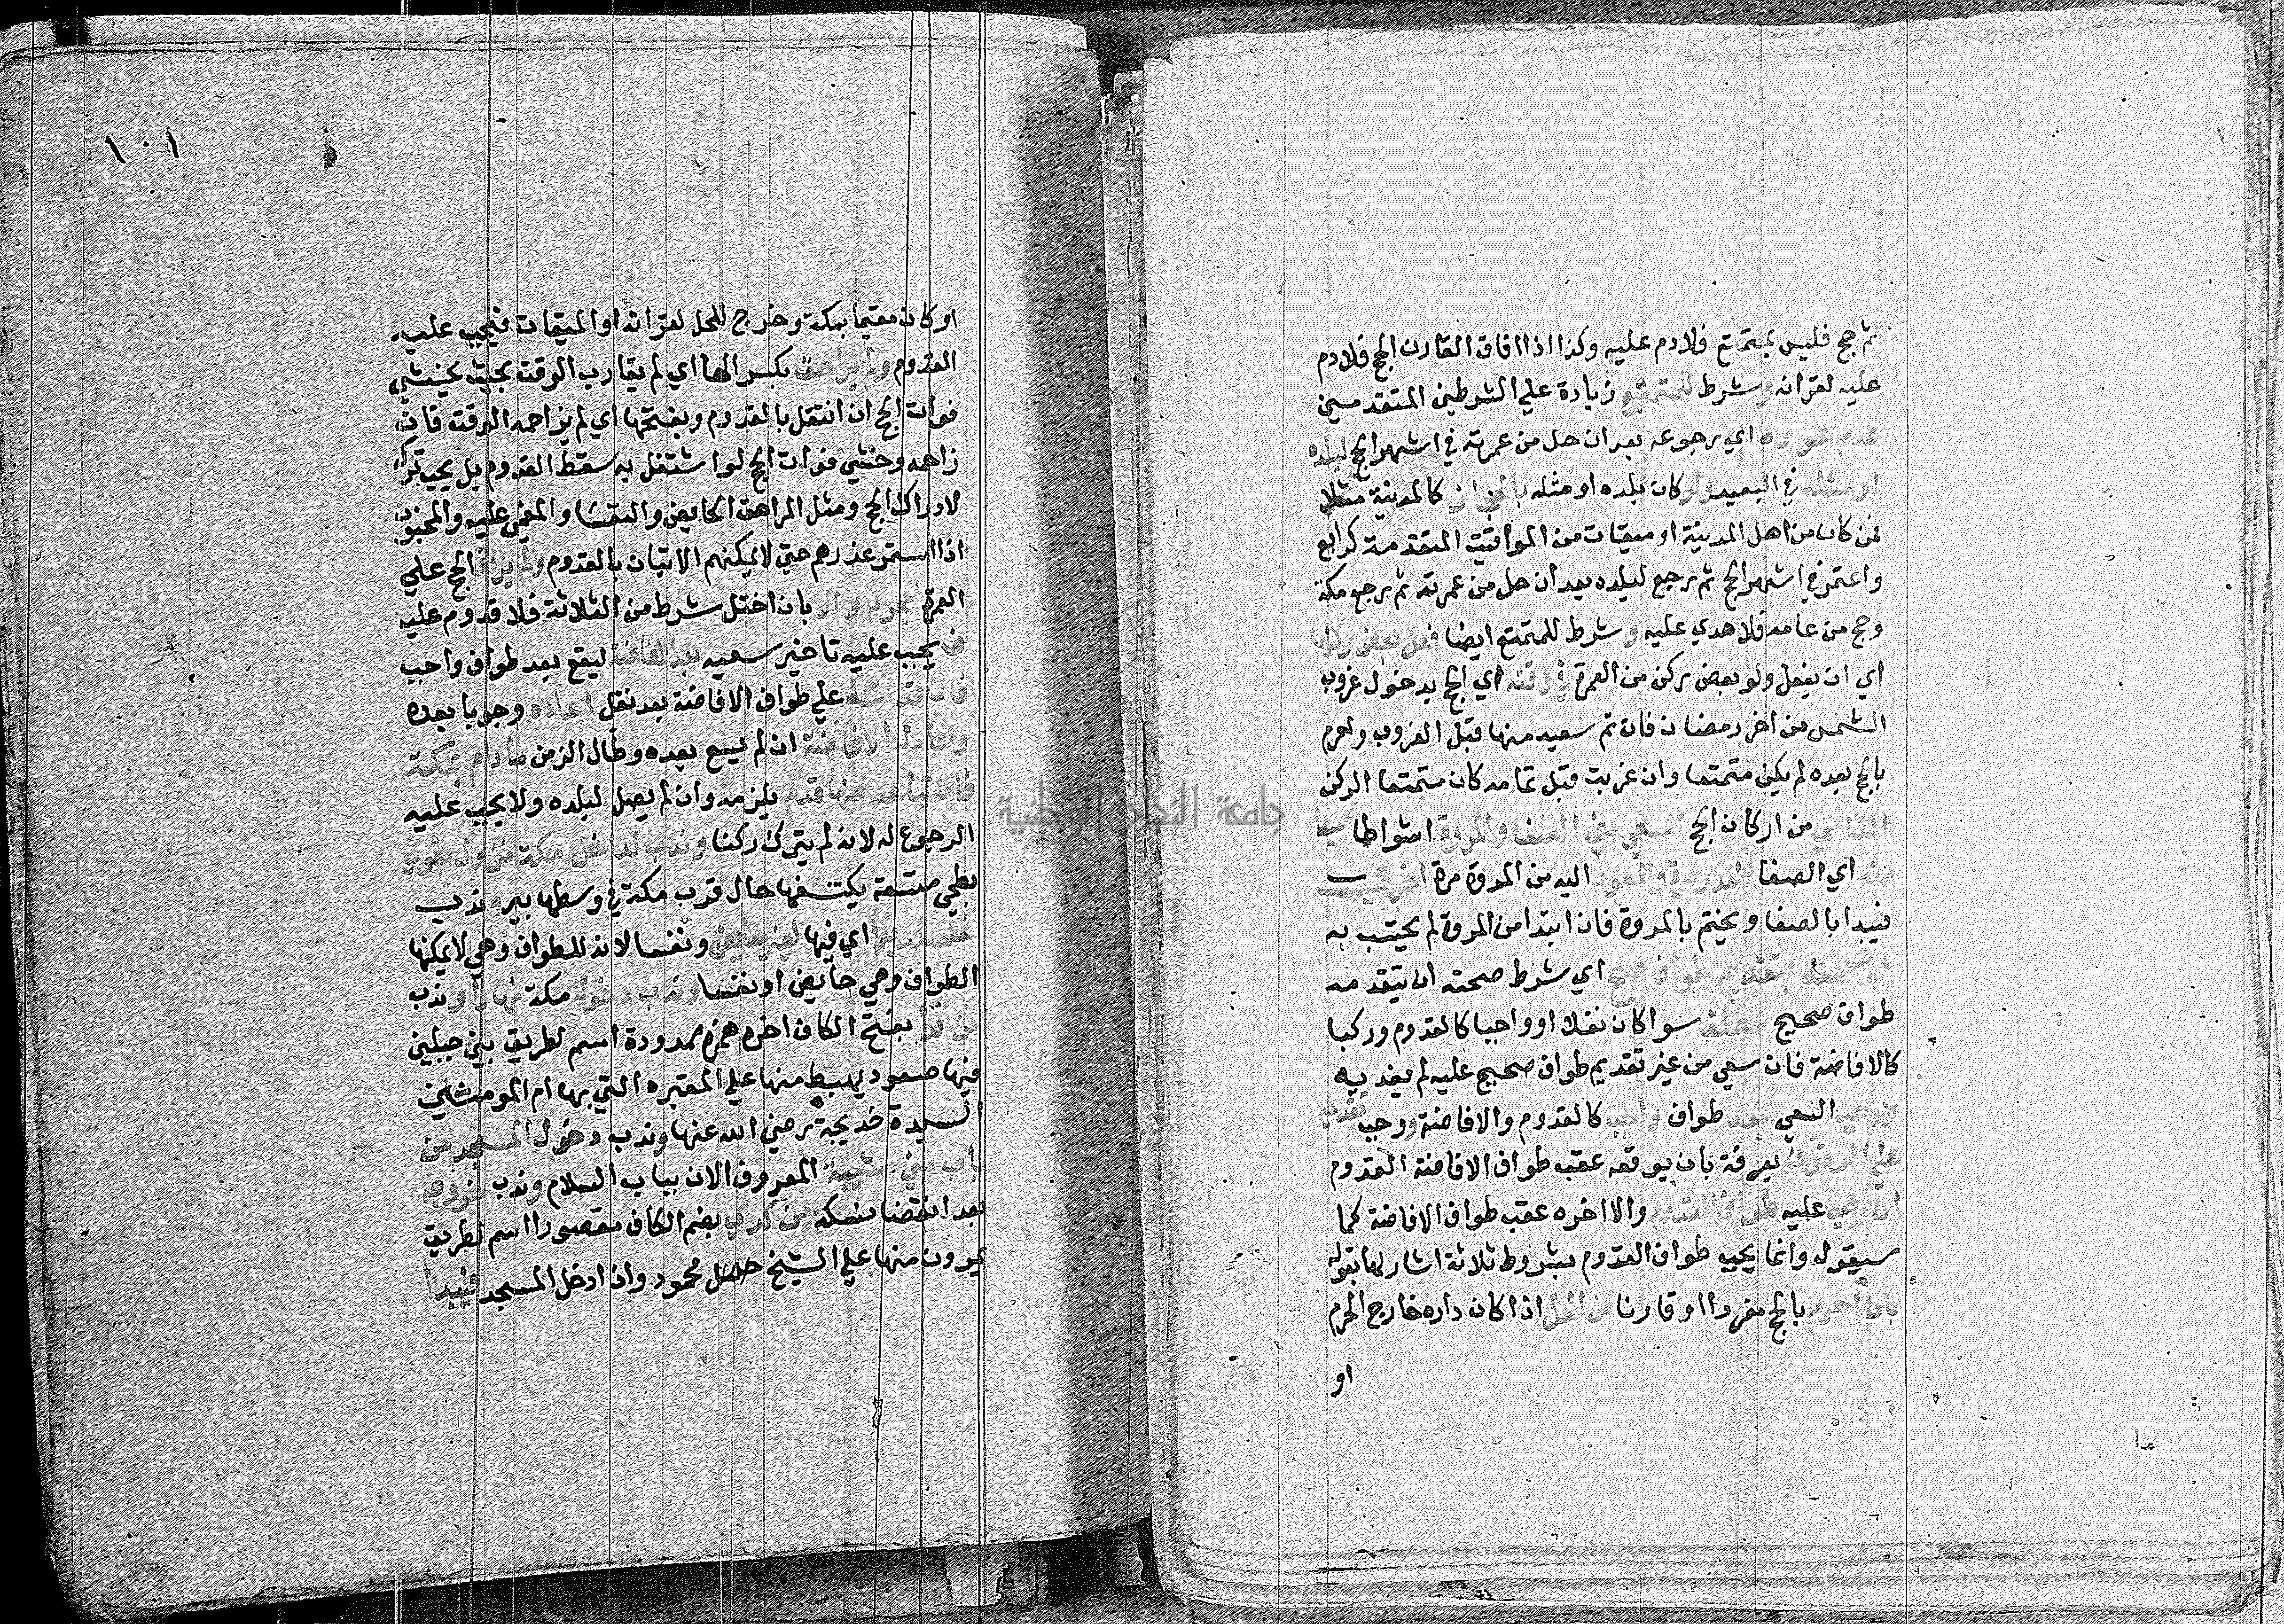 ثم حج فليس بمتمتع فلا دم عليه وكذا اذا افاق القارن الحج فلا دم
عليه لقرانه وشرط للمتمتع زيادة علي الشرطين المتقدمين
عدم عوده اي رجوعه بعد ان حل من عمرته في اشهر الحج لبلده
او مثله في البعيد ولو كان بلده او مثله بالحجاز كالمدينة مثلا
فمن كان من اهل المدينة او ميقات من المواقيت المتقدمة كرابغ
واعتمر في اشهر الحج ثم رجع لبلده بعد ان حل من عمرته ثم رجع مكة
وحج من عامه فلا هدي عليه وشرط للمتمتع ايضا فعل بعض ركنها
اي ان يفعل ولو بعض ركن من العمرة في وقته اي الحج بدخول غروب
الشمس من اخر رمضان فان تم سعيه منها قبل الغروب واحرم
بالحج بعده لم يكن متمتعا وان غربت قبل تمامه كان متمتعا الركن
الثاني من اركان الحج السعي بين الصفا والمروة اشواطا سبعا
منه اي الصفا البدو مرة والعود اليه من المروة مرة اخري
فيبدا بالصفا ويختم بالمروة فان ابتدا من المروة لم يحتسب به
وصحته بتقديم طواف صحيح اي شرط صحته ان يتقدمه
طواف صحيح مطلقا سوا كان نفلا او واجبا كالقدوم وركنا
كالافاضة فان سعي من غير تقديم طواف صحيح عليه لم يعد به
ووجب السعي بعد طواف واجب كالقدوم والافاضة ووجب تقديمه
علي الوقوف بعرفة بان يوقعه عقب طواف الافاضة القدوم
ان وجب عليه طواف القدوم والا اخره عقب طواف الافاضة كما
سيقوله وانما يجب طواف القدوم بشروط ثلاثة اشار لها بقوله
بان احرم بالحج مفردا او قارنا من الحل اذا كان داره خارج الحرم
او
١٠١
او كان مقيما بمكة وخرج للحل لقرانه او الميقات فيجب عليه
القدوم ولم يراهق بكسر الها اي لم يقارب الوقت بحيث يخشي
فوات الحج ان اشتغل بالقدوم وبفتحها اي لم يزاحمه الوقت فان
زاحمه وخشي فوات الحج لو اشتغل به سقط القدوم بل يجب تركه
لادراك الحج ومثل المراهق الحايض والنفسا والمغمي عليه والمجنون
اذا استمر عذرهم حتي لا يمكنهم الاتيان بالقدوم ولم يردف الحج علي
العمرة بحرم والا بان اختل شرط من الثلاثة فلا قدوم عليه
فيجب عليه تاخير سعيه بعد الافاضة ليقع بعد طواف واجب
فان قدمه علي طواف الافاضة بعد نفل اعاده وجوبا بعده
واعاد له الافاضة ان لم يسع بعده وطال الزمن ما دام بمكة
فان تباعد عنها فدم يلزمه وان لم يصل لبلده ولا يجب عليه
الرجوع له لانه لم يترك ركنا وندب لداخل مكة نزول بطوي
بطحي متسعة يكتنفها جبال قرب مكة في وسطها بير وندب
غسل بها اي فيها لغير حايض ونفسا لانه للطواف وهي لا يمكنها
الطواف وهي حايض او نفسا وندب دخوله مكة نهارا وندب
من كدا بفتح الكاف اخره همزة ممدودة اسم لطريق بين جبلين
فيها صعود يهبط منها علي المقبره التي بها ام المومنين
السيدة خديجة رضي الله عنها وندب دخول المسجد من
باب بني شيبة المعروف الان بباب السلام وندب خروجه
بعد انقضا نسكه من كدي بضم الكاف مقصورا اسم لطريق
يمرون منها علي الشيخ محمود وان ادخل المسجد فيبدا
جامعة النجاح الوطنية